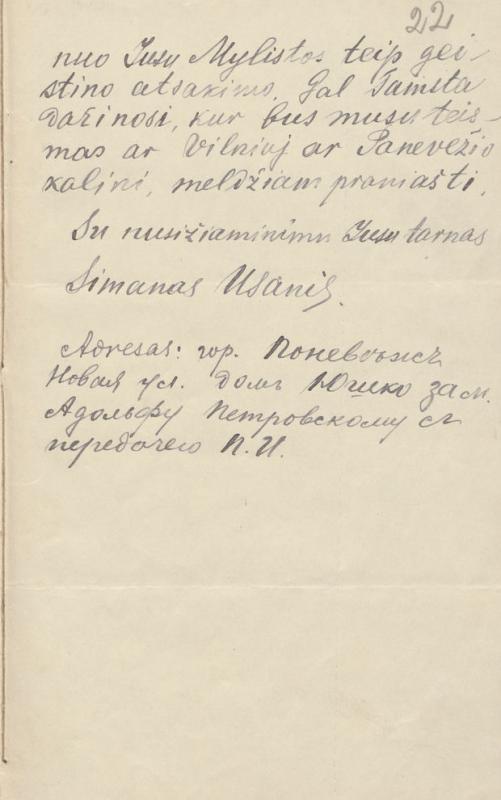 22
nuo Jusu Mylistos teip gei-
stino atsakimo. Gal Tamsta
dažinosi, kur bus musu teis-
mas ar Vilniuj ar Panevėžio
kalini, meldžiam praniašti.
Su nusižiaminimu Jusu tarnas
Simanas Usanis.
Adresas: гор. Поневѣжъ
Новая ул. домъ Юшко зам.
Адольфу Петровскому съ
передачею П. И.